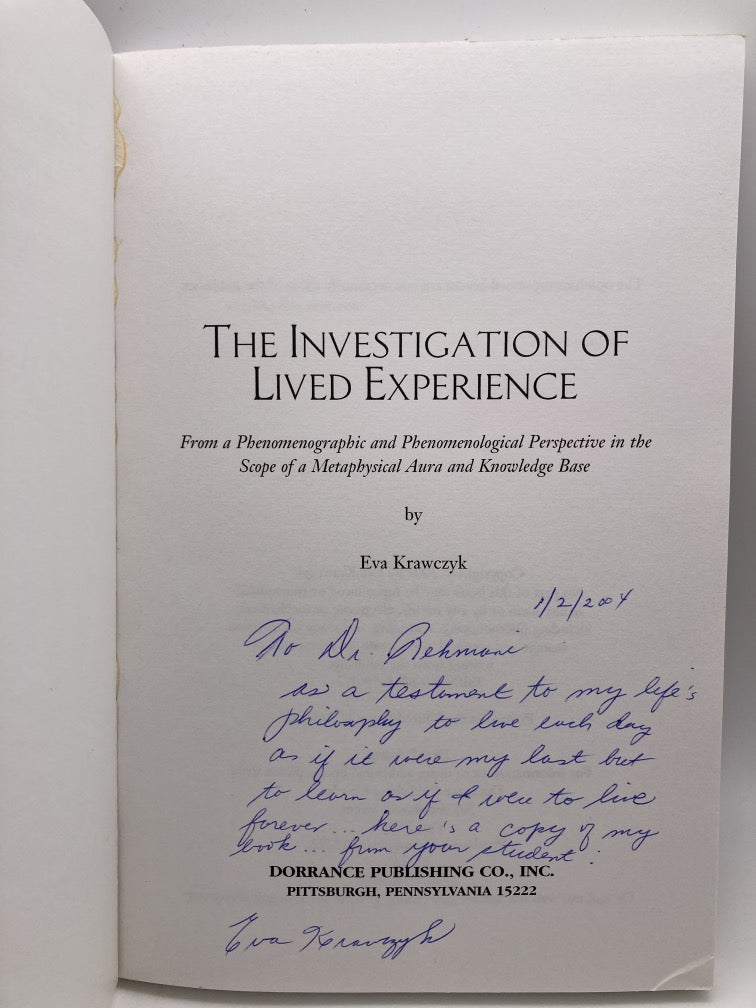 THE INVESTIGATION OF
LIVED EXPERIENCE
From a Phenomenographic and Phenomenological Perspective in the
Scope of a Metaphysical Aura and Knowledge Base
by
Eva Krawczyk
1/2/2004
To Dr. Rehmani
as a testament to my life's
philosophy to live each day
as if it were my last but
to learn as if I were to live
forever... here's a copy of my
book... from your student:
DORRANCE PUBLISHING CO., INC.
PITTSBURGH, PENNSYLVANIA 15222
Eva Krawczyk